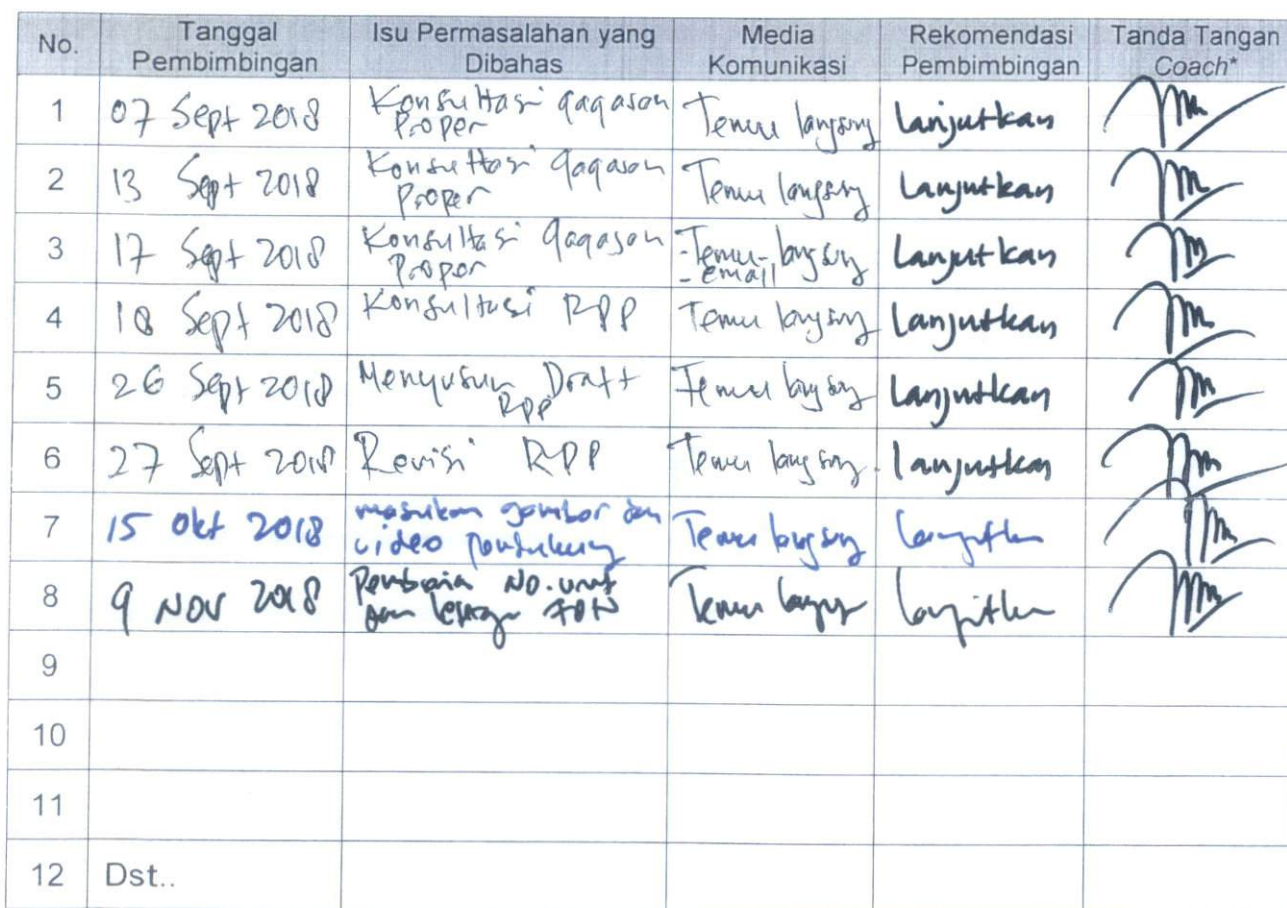 No. Tanggal Pembimbingan Isu Permasalahan yang Dibahas Media Komunikasi Rekomendasi Pembimbingan Tanda Tangan Coach*
1 07 Sept 2018 Konsultasi gagasan Proper Temu langsung Lanjutkan
2 13 Sept 2018 Konsultasi gagasan Proper Temu langsung Lanjutkan
3 17 Sept 2018 Konsultasi gagasan Proper - Temu langsung - email Lanjutkan
4 18 Sept 2018 Konsultasi RPP Temu langsung Lanjutkan
5 26 Sept 2018 Menyusun Draft RPP Temu langsung Lanjutkan
6 27 Sept 2018 Revisi RPP Temu langsung Lanjutkan
7 15 Okt 2018 masukan gambar dan video pendukung Temu langsung Lanjutkan
8 9 Nov 2018 No. urut dan Temu langsung Lanjutkan
9
10
11
12 Dst..